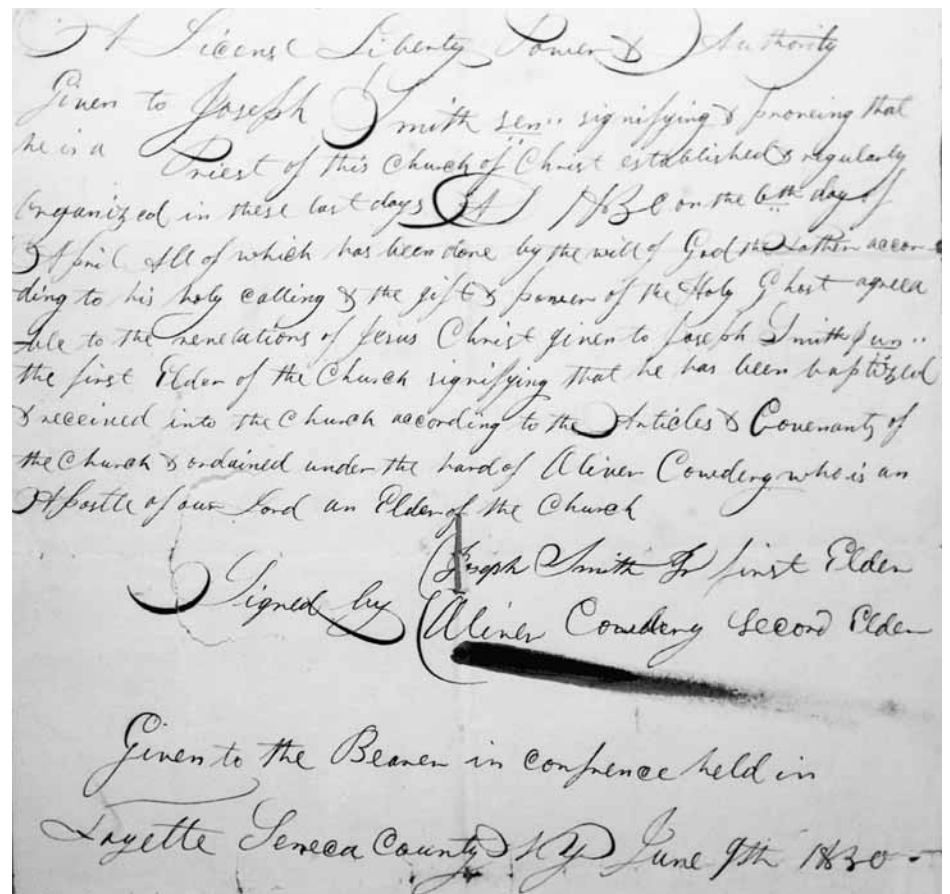 A License Liberty Power & Authority
Given to Joseph Smith sen.. signifying & proveing that
he is a Priest of this Church of Christ established & regularly
Organized in these last days AD 1830 on the 6th day of
April All of which has been done by the will of God the Father accor-
ding to his holy calling & the gift & power of the Holy Ghost agreea
-ble to the revelations of Jesus Christ given to Joseph Smith Jun..
the first Elder of the Church signifying that he has been baptized
& received into the Church according to the Articles & Covenants of
the Church & ordained under the hand of Oliver Cowdery who is an
Apostle of our Lord an Elder of the Church
Joseph Smith Jr first Elder
Signed by
Oliver Cowdery Second Elder
Given to the Bearer in confrence held in
Fayette Seneca County NY June 9th 1830 -